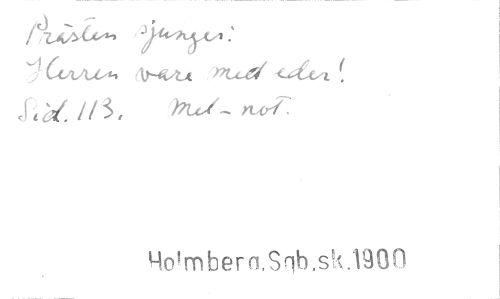 Prästen sjunger:
Herren vare med eder!
Sid. 113. Mel-not.
Holmberg.Sgb.sk.1900